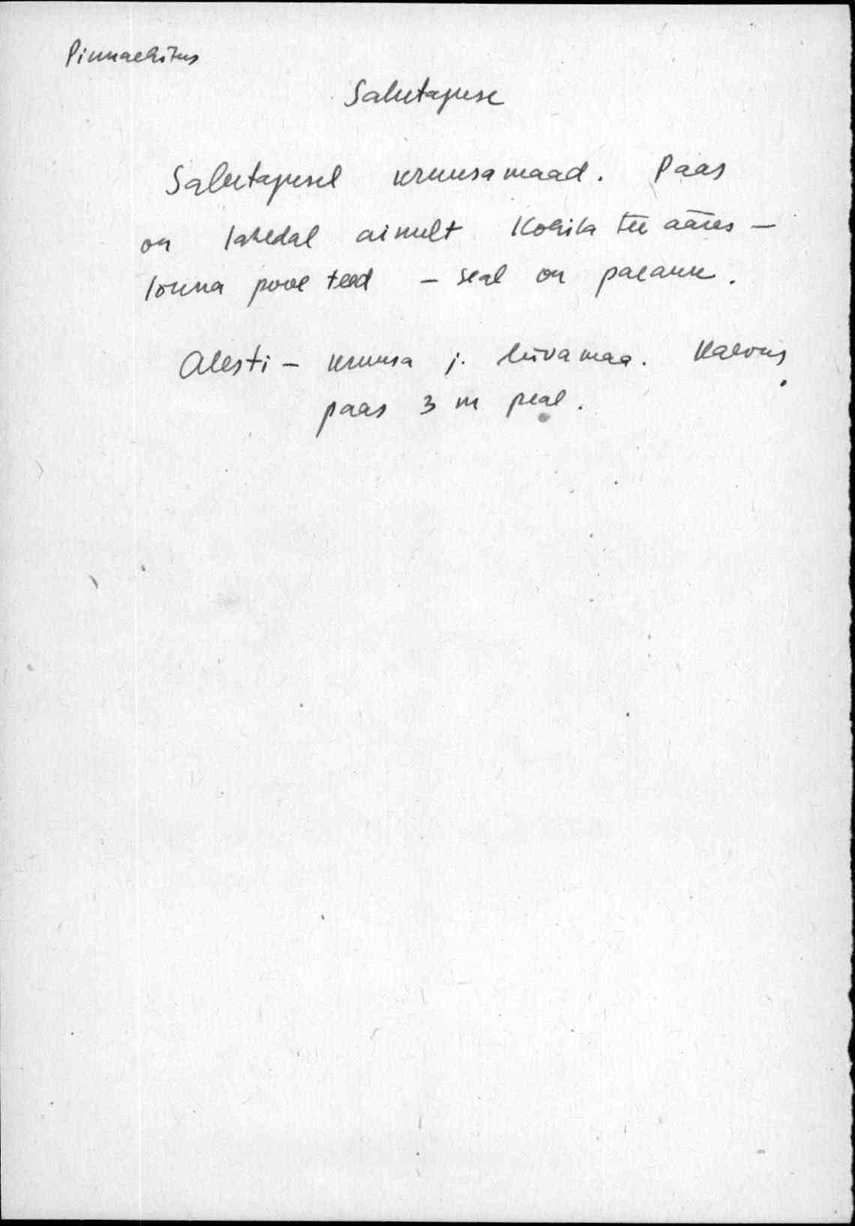 Pinnaehitus
Salutaguse
Salutagusel kruusamaad. Paas
on lähedal ainult Kohila tee ääres –
lõuna pool teed – seal on paeauk.
Alesti – kruusa j. liivamaa. Kaevus
paas 3 m peal.